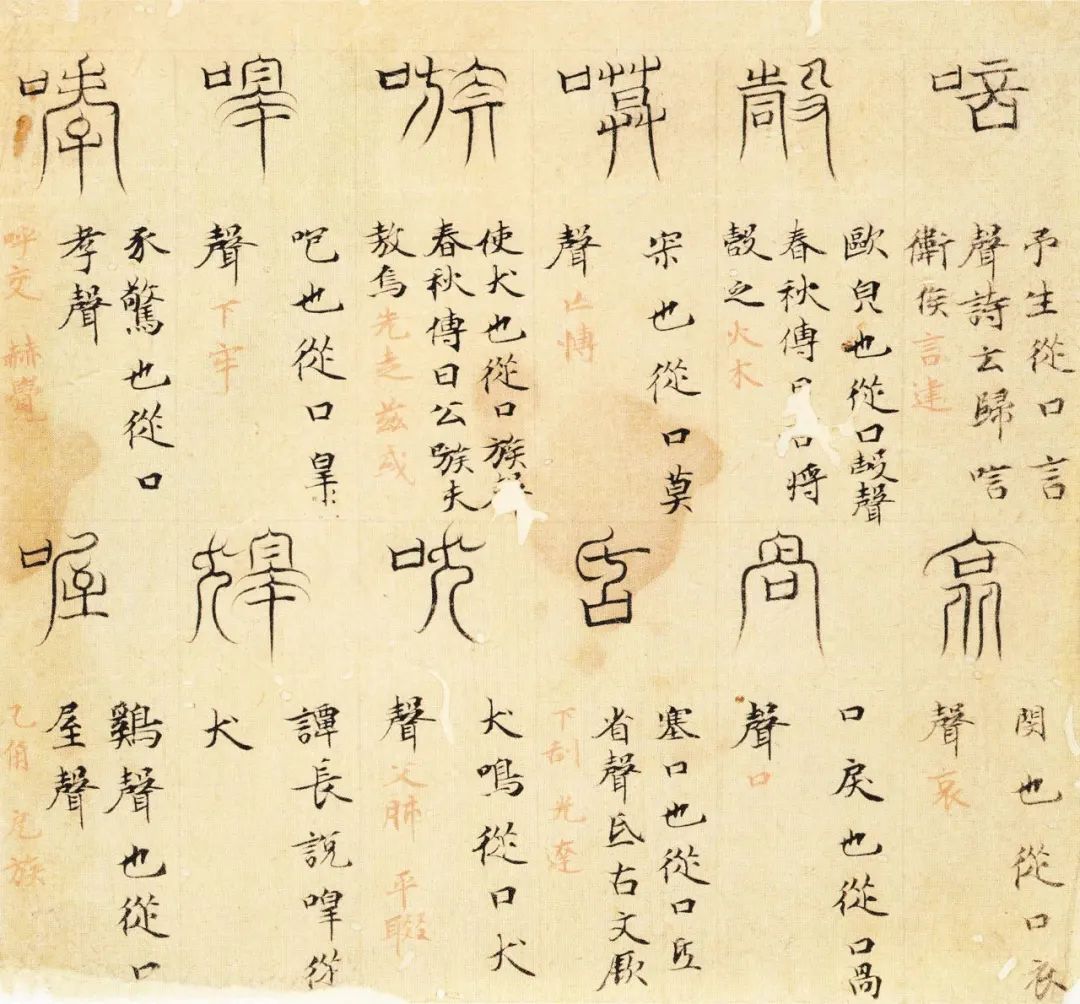 唁
予生從口言
聲詩云歸唁
衛侯言建
嗀
歐皃也從口㱿聲
春秋傳曰 將
嗀之火木
嗼
宋也從口莫
聲亡博
嗾
使犬也從口族聲
春秋傳曰公嗾夫
敖焉先走茲成
嘷
咆也從口皋
聲下牢
哮
豕驚也從口
孝聲
呼交 赫覺
哀
閔也從口衣
聲哀
咼
口戾也從口咼
聲口
𠯑
塞口也從口氒
省聲氒古文厥
下刮 光達
吠
犬鳴從口犬
聲父肺 平
獋
譚長說嘷從
犬
喔
鷄聲也從口
屋聲
乙角 族